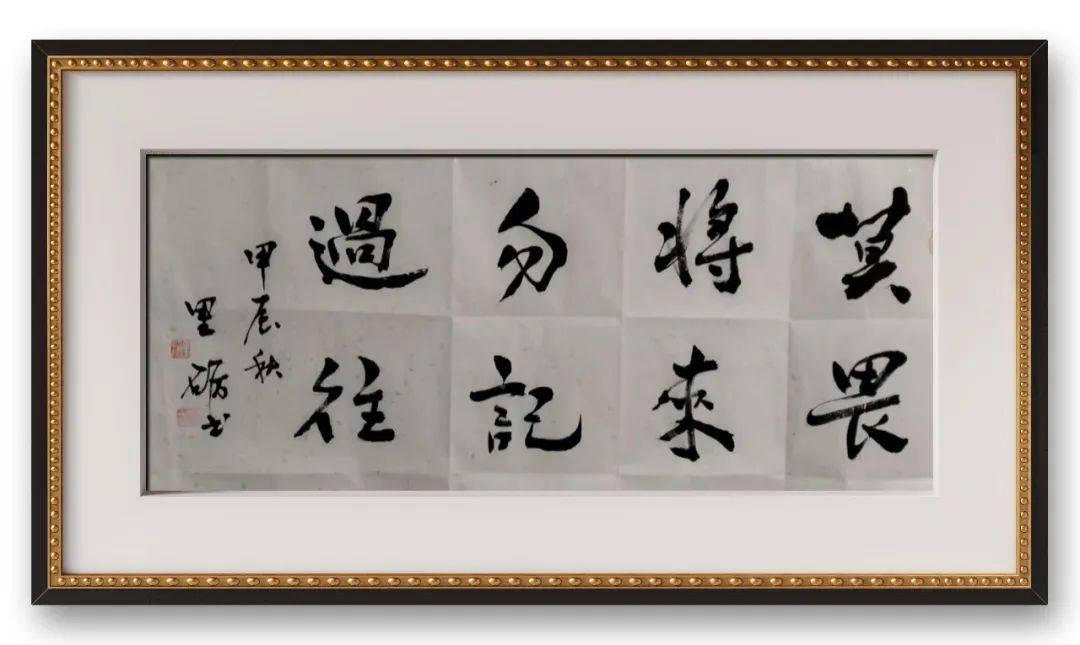 莫畏
將來
勿記
過往
甲辰秋
里礪书